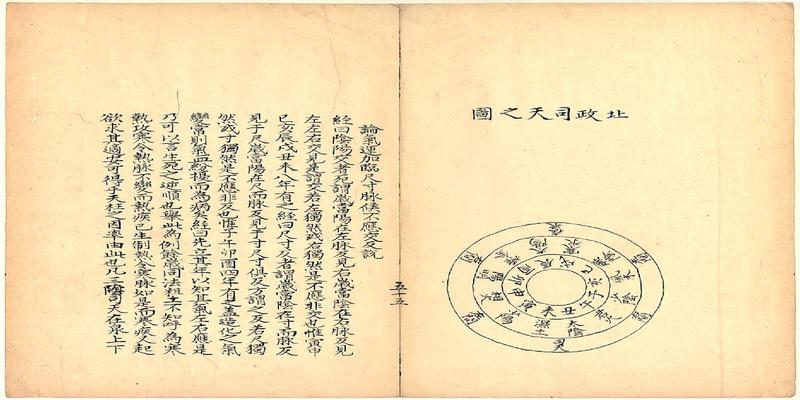 北政司天之圖
巳戌辰
酉卯
亥
子午
寅申
丑未
太陰
濕土
論氣運加臨尺寸脉候不應交反說
經曰陰陽交者死謂歲當陽在左脉反見右歲當陰在右脉反見
左左右交見是謂交若左獨然或右獨然是不應非交也惟寅申
巳亥辰戌丑未八年有之經曰尺寸反者謂歲當陰在寸而脉反
見于尺歲當陽在尺而脉反見于寸尺寸俱反方謂之反若尺獨
然或寸獨然是不應非反也惟子午卯酉四年有之蓋造化之氣
變常則氣血紛擾而為病矣經曰先立其年以知其氣左右應見
乃可以言生死之逆順也舉此為例餘歲同法粗工不知呼為寒
熱攻寒令熱脉不變而熱疾已生制熱令寒脉如是而寒疾又起
欲求其適安可得乎夭枉之因率由此也凡三陰司天在泉上下
五十五